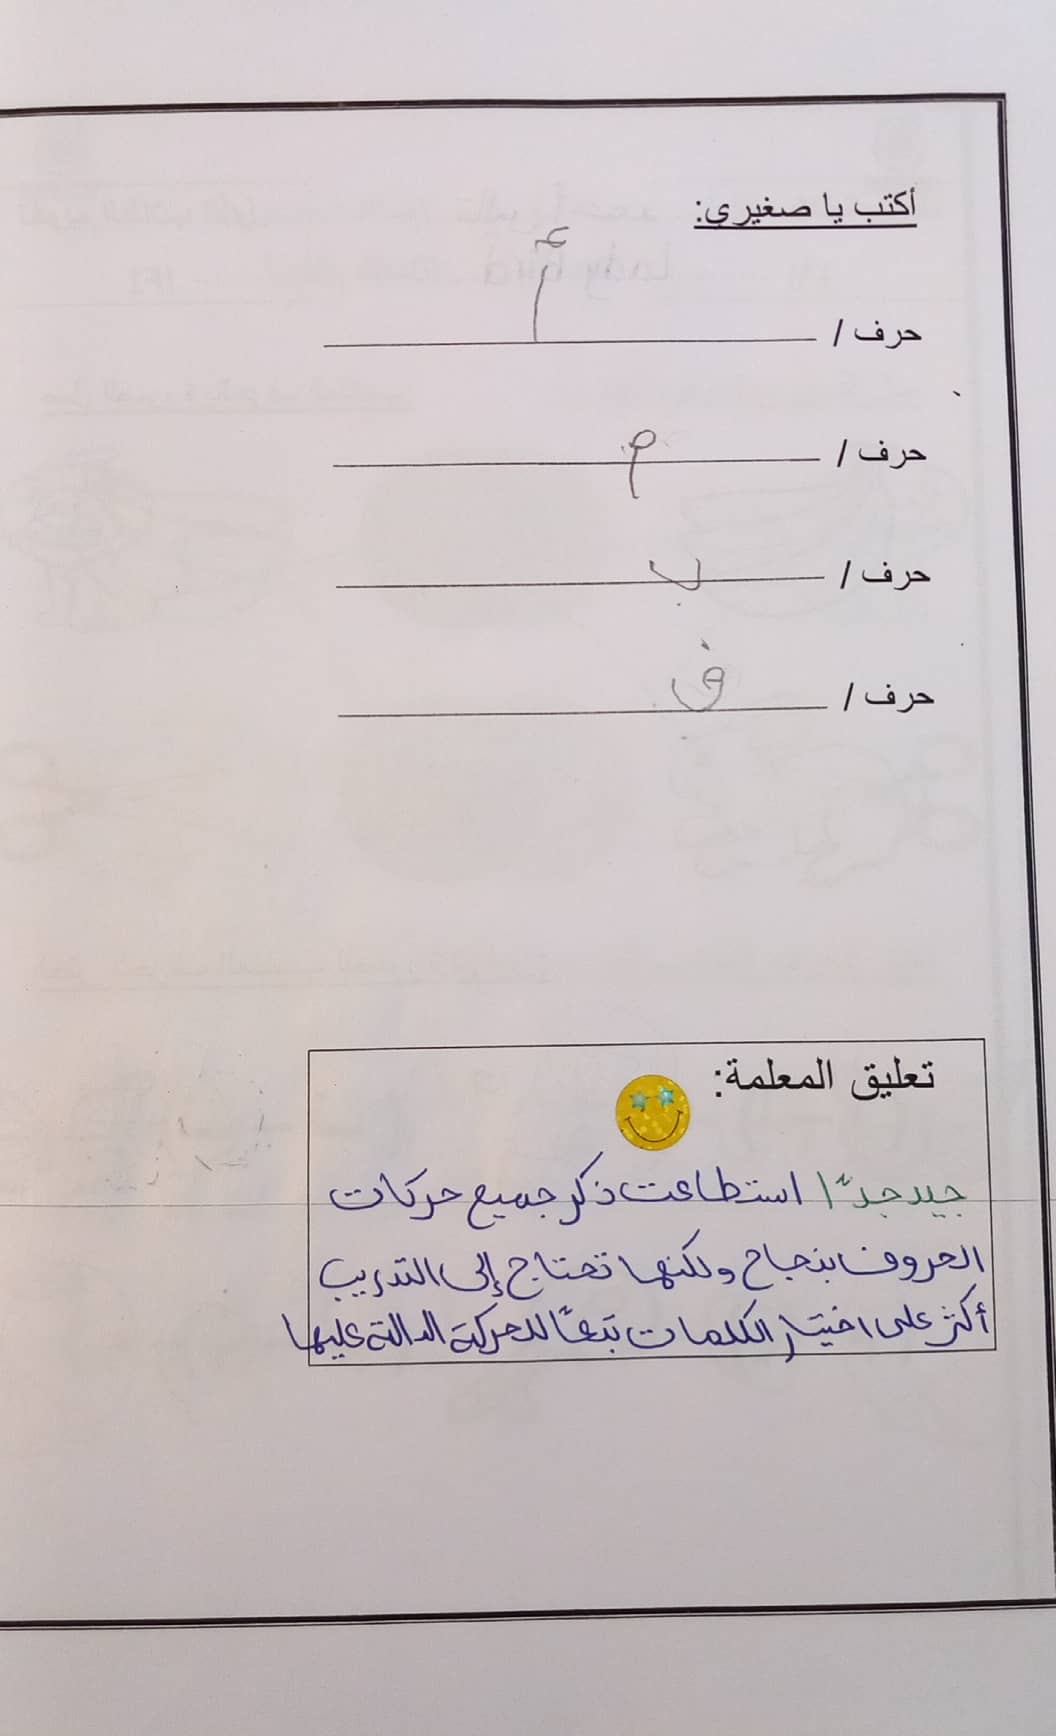 أكتب يا صغيري:
حرف / أ
حرف / م
حرف / ب
حرف / ف
تعليق المعلمة:
جيد جدًا استطاعت ذكر جميع حركات
الحروف بنجاح ولكنها تحتاج إلى التدريب
أكثر على اختيار الكلمات تبعًا للحركة الدالة عليها